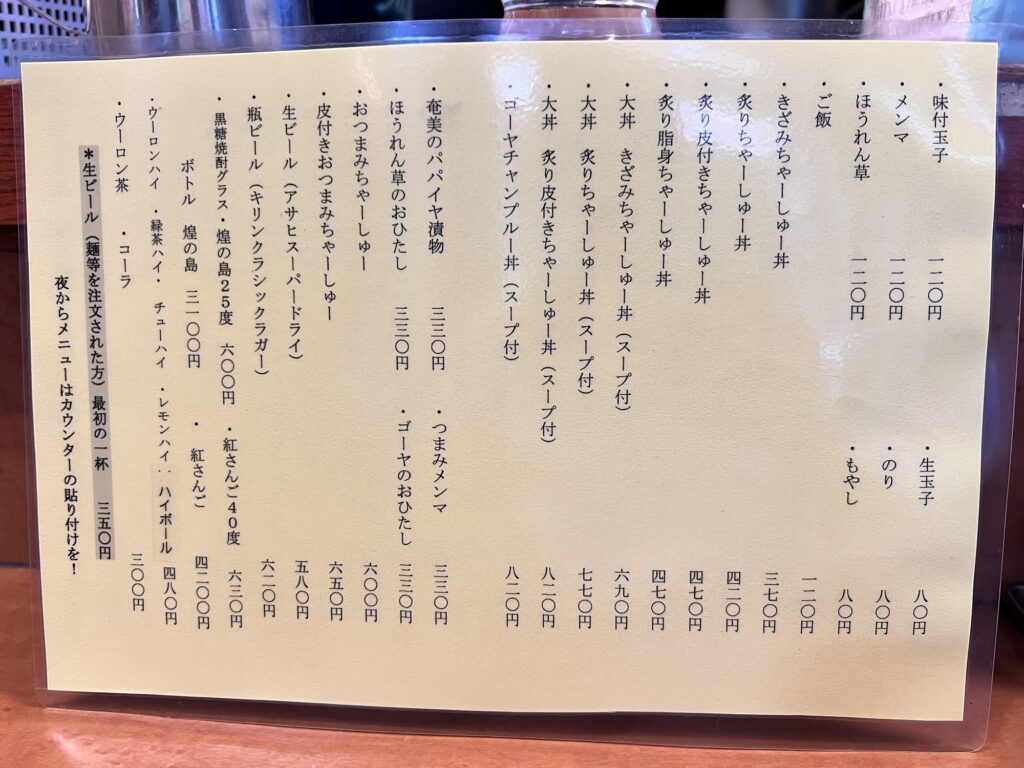 ・味付玉子　一二〇円　・生玉子　八〇円
・メンマ　一二〇円　・のり　八〇円
・ほうれん草　一二〇円　・もやし　八〇円
・ご飯　一二〇円
・きざみちゃーしゅー丼　三七〇円
・炙りちゃーしゅー丼　四二〇円
・炙り皮付きちゃーしゅー丼　四七〇円
・炙り脂身ちゃーしゅー丼　四七〇円
・大丼　きざみちゃーしゅー丼（スープ付）　六九〇円
・大丼　炙りちゃーしゅー丼（スープ付）　七七〇円
・大丼　炙り皮付きちゃーしゅー丼（スープ付）　八二〇円
・ゴーヤチャンプルー丼（スープ付）　八二〇円
・奄美のパパイヤ漬物　三三〇円　・つまみメンマ　三三〇円
・ほうれん草のおひたし　三三〇円　・ゴーヤのおひたし　三三〇円
・おつまみちゃーしゅー　六〇〇円
・皮付きおつまみちゃーしゅー　六五〇円
・生ビール（アサヒスーパードライ）　五八〇円
・瓶ビール（キリンクラシックラガー）　六二〇円
・黒糖焼酎グラス・煌の島２５度　六〇〇円　・紅さんご４０度　六三〇円
ボトル　煌の島　三一〇〇円　・紅さんご　四二〇〇円
・ウーロンハイ　・緑茶ハイ・　チューハイ　・レモンハイ・ハイボール　四八〇円
・ウーロン茶　・コーラ　三〇〇円
＊生ビール（麺等を注文された方）　最初の一杯　三五〇円
夜からメニューはカウンターの貼り付けを！